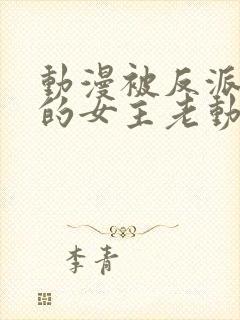 動漫被反派
的女主老動
李青